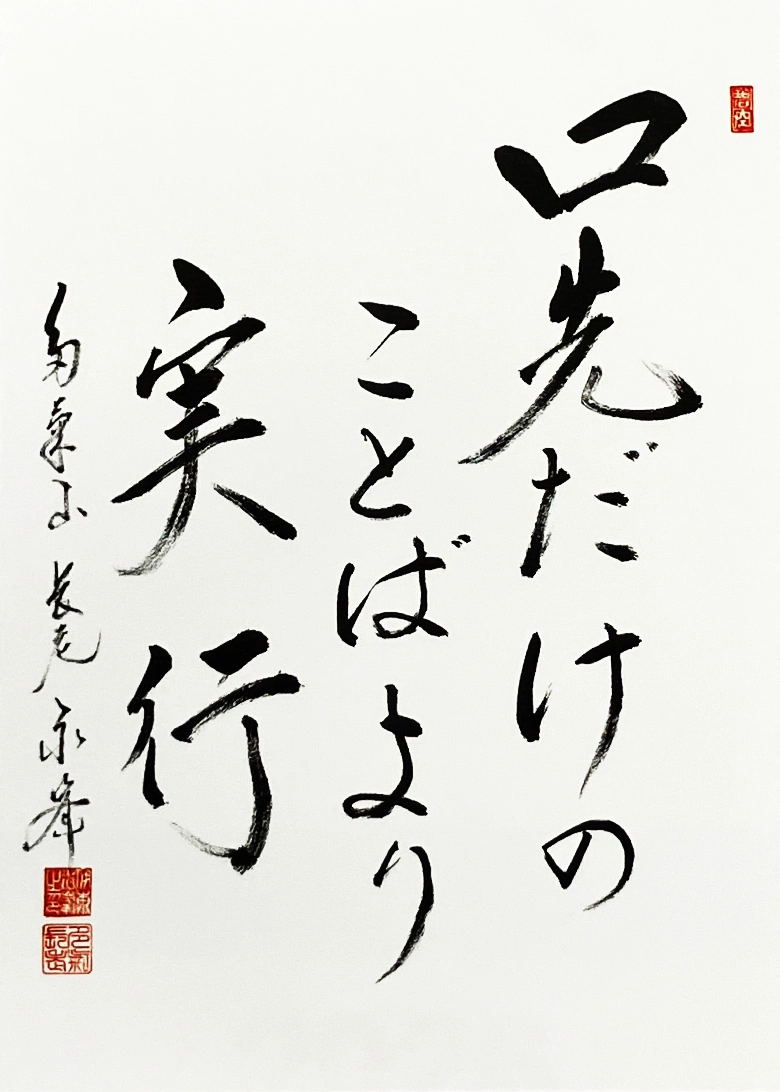 口先だけの
ことばより
実行
長老 永峯